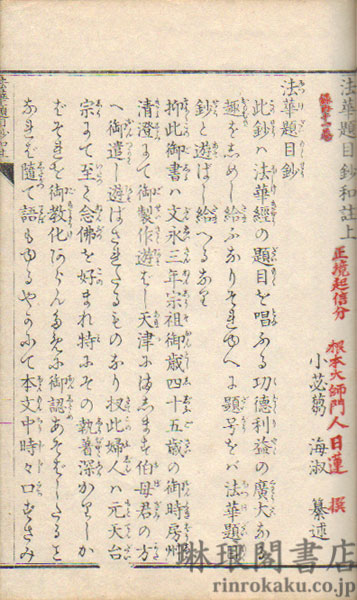 法華題目鈔和註上
正境起信分
根本大師門人日蓮 撰
小苾蒭 海淑 纂述
法華題目鈔
此鈔ハ法華經の題目を唱ふる功德利益の廣大なる
趣を志めし給ふなりそれゆへに題号をバ法華題目
鈔と遊バし給へるなり
抑此御書ハ文永三年宗祖御歳四十五歳の御時房州
清澄にて御製作遊ばし天津にましますを伯母君の方
へ御遣し遊ばされたるものなり扨此婦人ハ元天台
宗にて至て念佛を好まれ特にその執着深かりしか
バそれを御教化あらんために御認あそばしたると
なれば隨て語もゆるやかにて本文中時々口ずさみ
琳琅閣書店
rinrokaku.co.jp